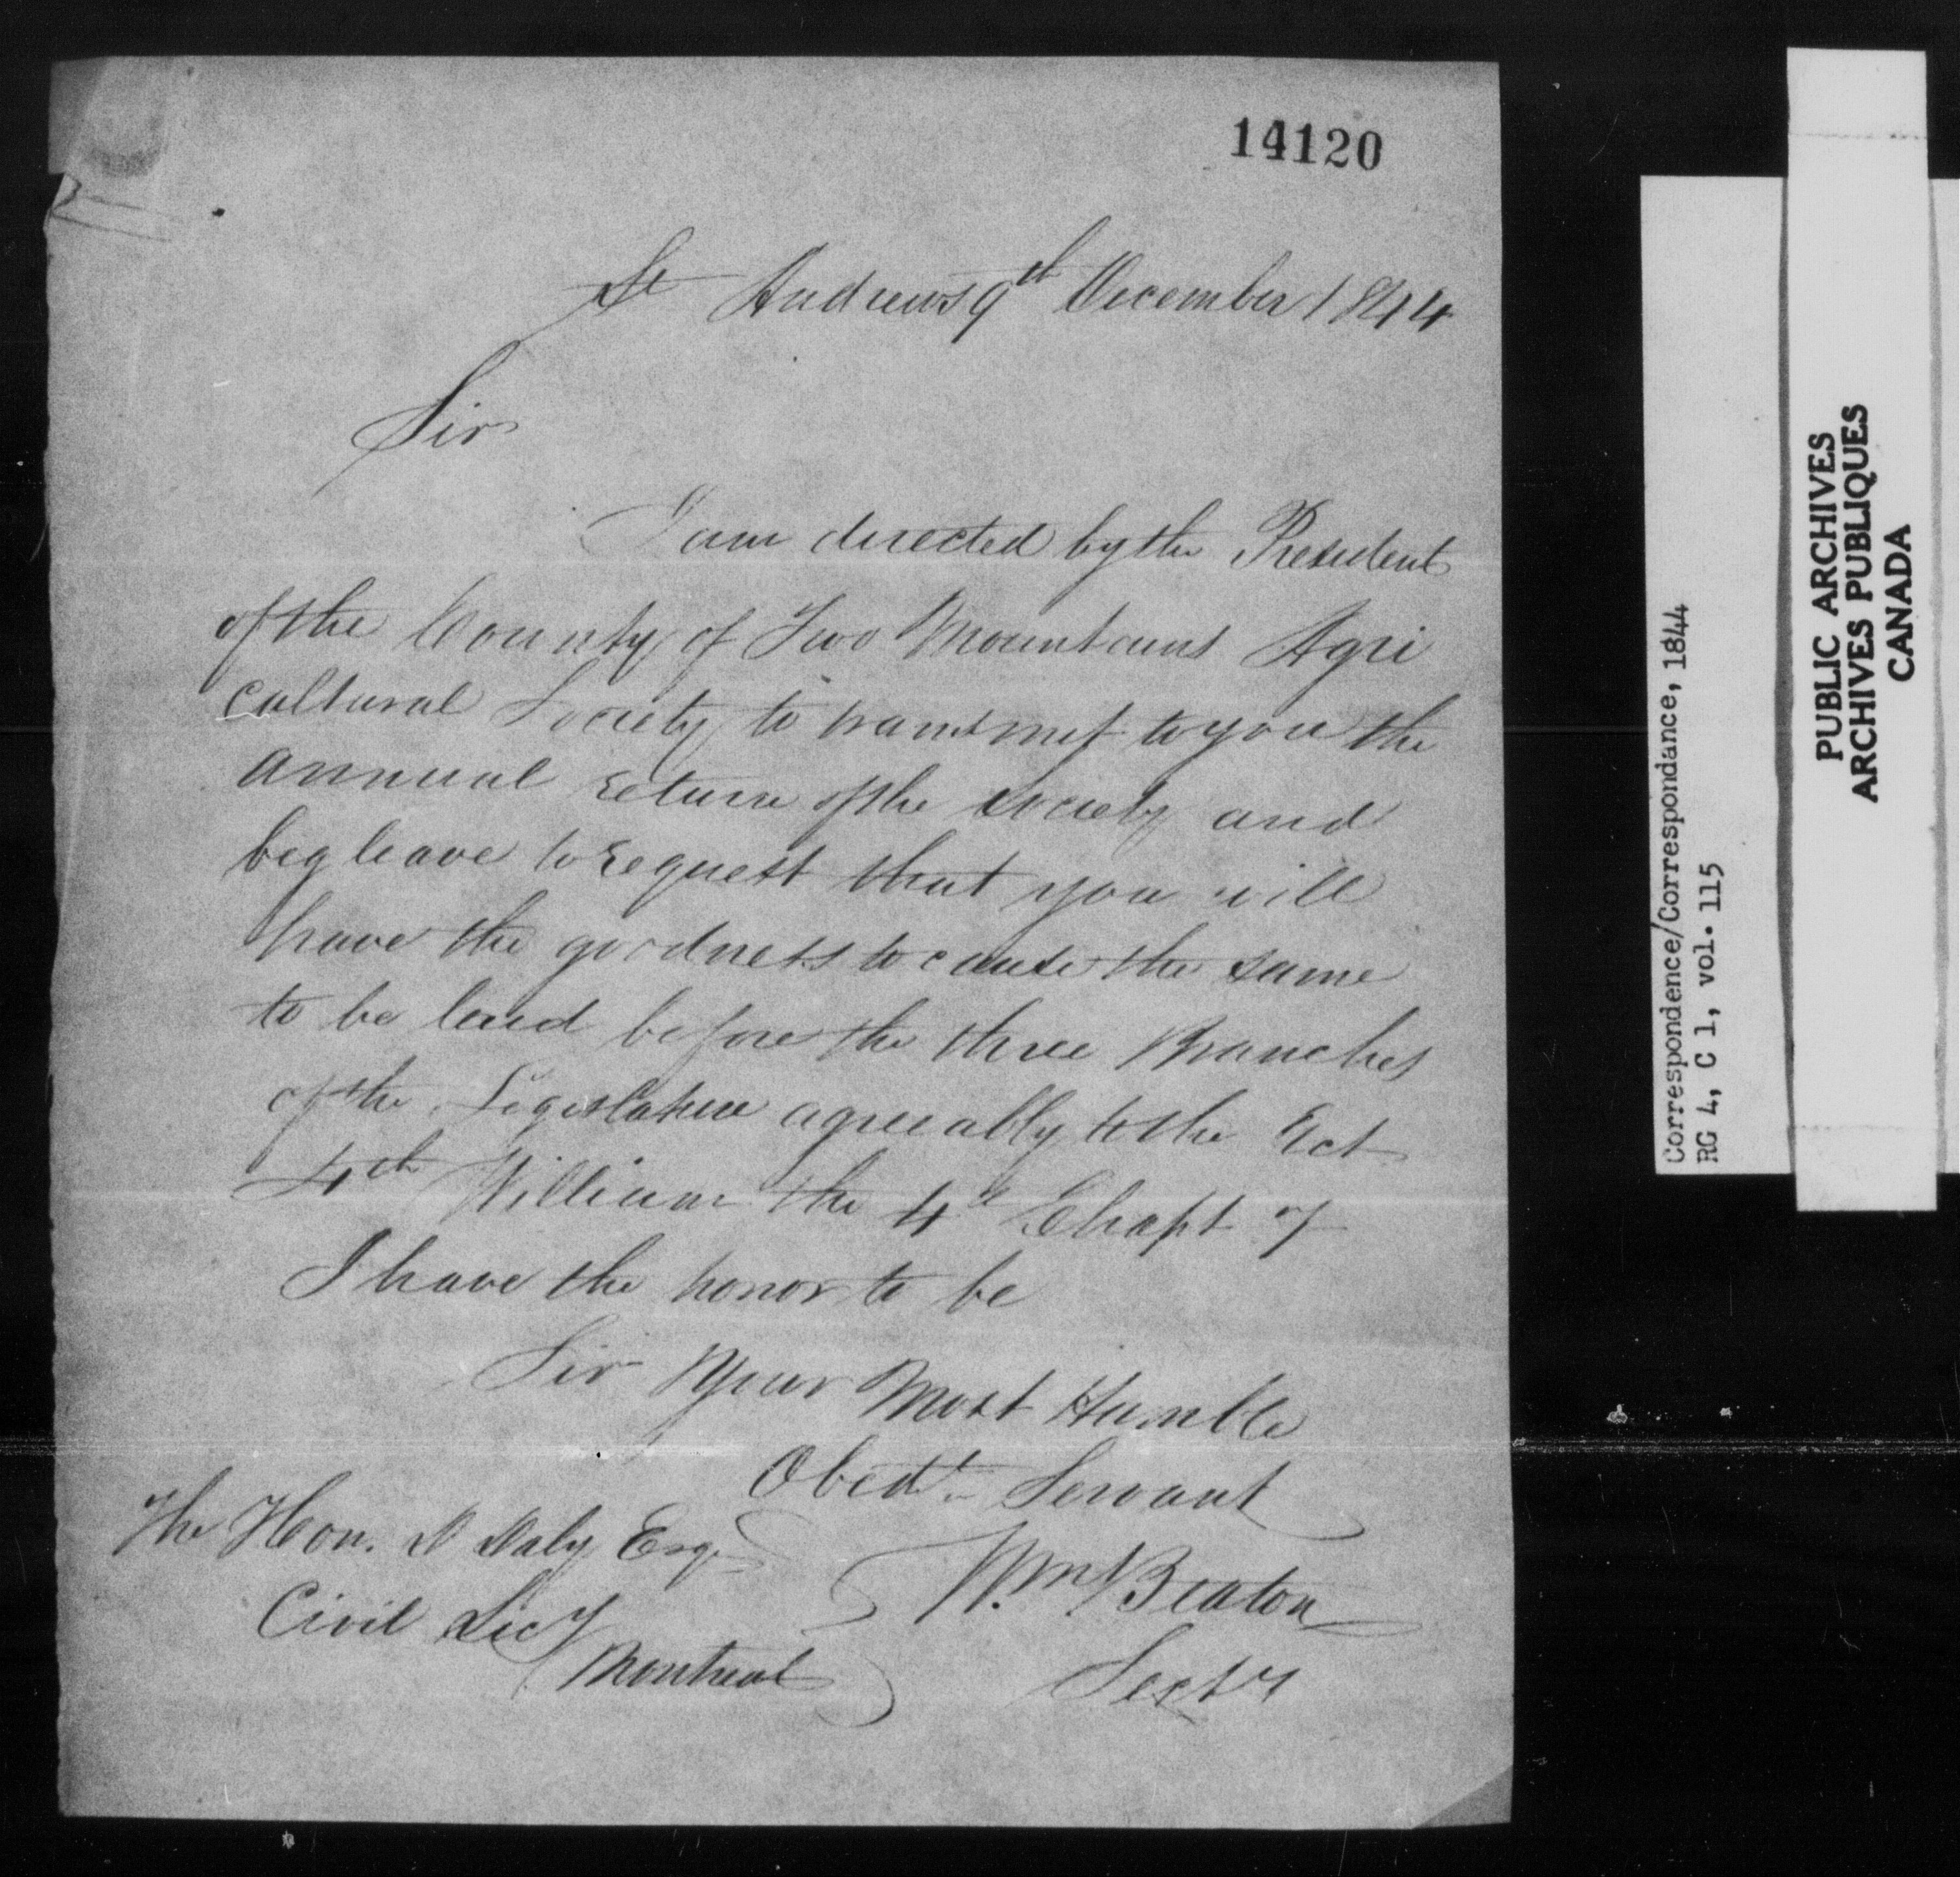 14120
St Andrews 9th December 1844
Sir
I am directed by the President
of the County of Two Mountains Agri
cultural Society to transmit to you the
annual return of the society and
beg leave to request that you will
have the goodness to cause the same
to be laid before the three Branches
of the Legislature agreeably to the Act
4th William the 4th Chapt 7
I have the honor to be
Sir Your Most Humble
Obedt Servant
Wm Beaton
Secty
The Hon. D Daly Esqr
Civil Secy
Montreal
Correspondence/Correspondance, 1844
RG 4, C 1, vol. 115
PUBLIC ARCHIVES
ARCHIVES PUBLIQUES
CANADA